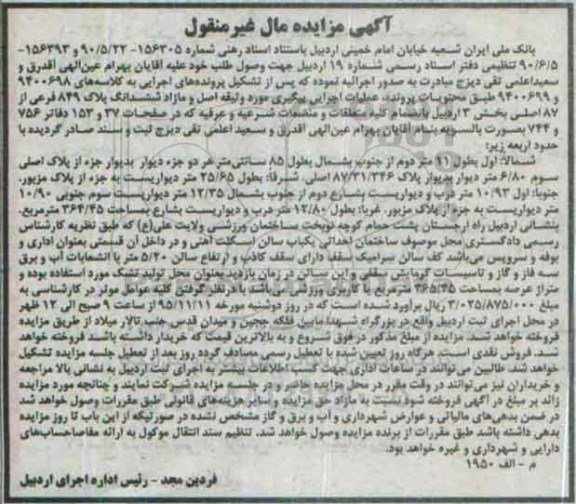 آگهی مزایده مال غیرمنقول
بانک ملی ایران شعبه خیابان امام خمینی اردبیل باستناد اسناد رهنی شماره ۱۵۶۳۰۵-۹۰/۵/۲۲ و ۱۵۶۳۹۳-
۹۰/۶/۵ تنظیمی دفتر اسناد رسمی شماره ۱۹ اردبیل جهت وصول طلب خود علیه آقایان بهرام عین‌الهی آقدرق و
سعید اعلمی تقی دیزج مبادرت به صدور اجرائیه نموده که پس از تشکیل پرونده‌های اجرایی به کلاسه‌های ۹۴۰۰۶۹۸
و ۹۴۰۰۶۹۹ طبق محتویات پرونده، عملیات اجرایی پیگیری مورد وثیقه اصل و مازاد ششدانگ پلاک ۸۴۹ فرعی از
۸۷ اصلی بخش ۳ اردبیل بانضمام کلیه متعلقات و منضمات شرعیه و عرفیه که در صفحات ۳۷ و ۱۵۳ دفاتر ۷۵۶
و ۷۴۴ بصورت بالسویه بنام آقایان بهرام عین‌الهی آقدرق و سعید اعلمی تقی دیزج ثبت و سند صادر گردیده با
حدود اربعه زیر:
شمالا: اول بطول ۱۱ متر دوم از جنوب بشمال بطول ۸۵ سانتی‌متر هر دو جزء دیوار بدیوار جزء از پلاک اصلی
سوم ۶/۸۰ متر دیوار بدیوار پلاک ۸۷/۳۱/۳۴۶ اصلی. شرقا: بطول ۲۵/۶۵ متر دیواریست به جزء از پلاک مزبور.
جنوبا: اول ۱۰/۹۳ متر درب و دیواریست بشارع دوم از جنوب بشمال ۱۲/۳۵ متر دیواریست سوم جنوبی ۱۰/۹۰
متر دیواریست به جزء از پلاک مزبور. غربا: بطول ۱۲/۸۰ متر درب و دیواریست بشارع بمساحت ۳۶۴/۴۵ مترمربع.
بنشانی اردبیل راه ارجستان پشت حمام کوچه نوبخت ساختمان ورزشی ولایت علی(ع) که طبق نظریه کارشناس
رسمی دادگستری محل موصوف ساختمان احداثی یکباب سالن اسکلت آهنی و در داخل آن قسمتی بعنوان اداری و
بوفه و سرویس می‌باشد کف سالن سرامیک سقف دارای سقف کاذب و ارتفاع سالن ۵/۲۰ متر با انشعابات آب و برق
سه فاز و گاز و تاسیسات گرمایش سقفی و این سالن در زمان بازدید بعنوان محل تولید تشک مورد استفاده بوده و
متراژ عرصه بمساحت ۳۶۵/۴۵ مترمربع با کاربری ورزشی می‌باشد با درنظر گرفتن کلیه عوامل موثر در کارشناسی به
مبلغ ۳/۰۲۵/۸۷۵/۰۰۰ ریال برآورد شده است که در روز دوشنبه مورخه ۹۵/۱۱/۱۱ از ساعت ۹ صبح الی ۱۲ ظهر
در محل اجرای ثبت اردبیل واقع در بزرگراه شهدا مابین فلکه ججین و میدان قدس جنب تالار میلاد از طریق مزایده
فروخته خواهد شد. مزایده از مبلغ مذکور در فوق شروع و به بالاترین قیمت که خریدار داشته باشد فروخته خواهد
شد. فروش نقدی است. هرگاه روز تعیین شده با تعطیل رسمی مصادف گردد روز بعد از تعطیل جلسه مزایده تشکیل
خواهد شد. طالبین می‌توانند در ساعات اداری جهت کسب اطلاعات بیشتر به اجرای ثبت اردبیل به نشانی بالا مراجعه
و خریداران نیز می‌توانند در وقت مقرر در محل مزایده حاضر و در جلسه مزایده شرکت نمایند و چنانچه مورد مزایده
زائد بر مبلغ در آگهی فروخته شود نسبت به مازاد حق مزایده و سایر هزینه‌های قانونی طبق مقررات وصول خواهد شد
در ضمن بدهی‌های مالیاتی و عوارض شهرداری و آب و برق و گاز مشخص نشده در صورتیکه از این باب تا روز مزایده
بدهی داشته باشد طبق مقررات از برنده مزایده وصول خواهد شد. تنظیم سند انتقال موکول به ارائه مفاصاحساب‌های
دارایی و شهرداری و غیره خواهد بود.
م - الف ۱۹۵۰
فردین مجد - رئیس اداره اجرای اردبیل